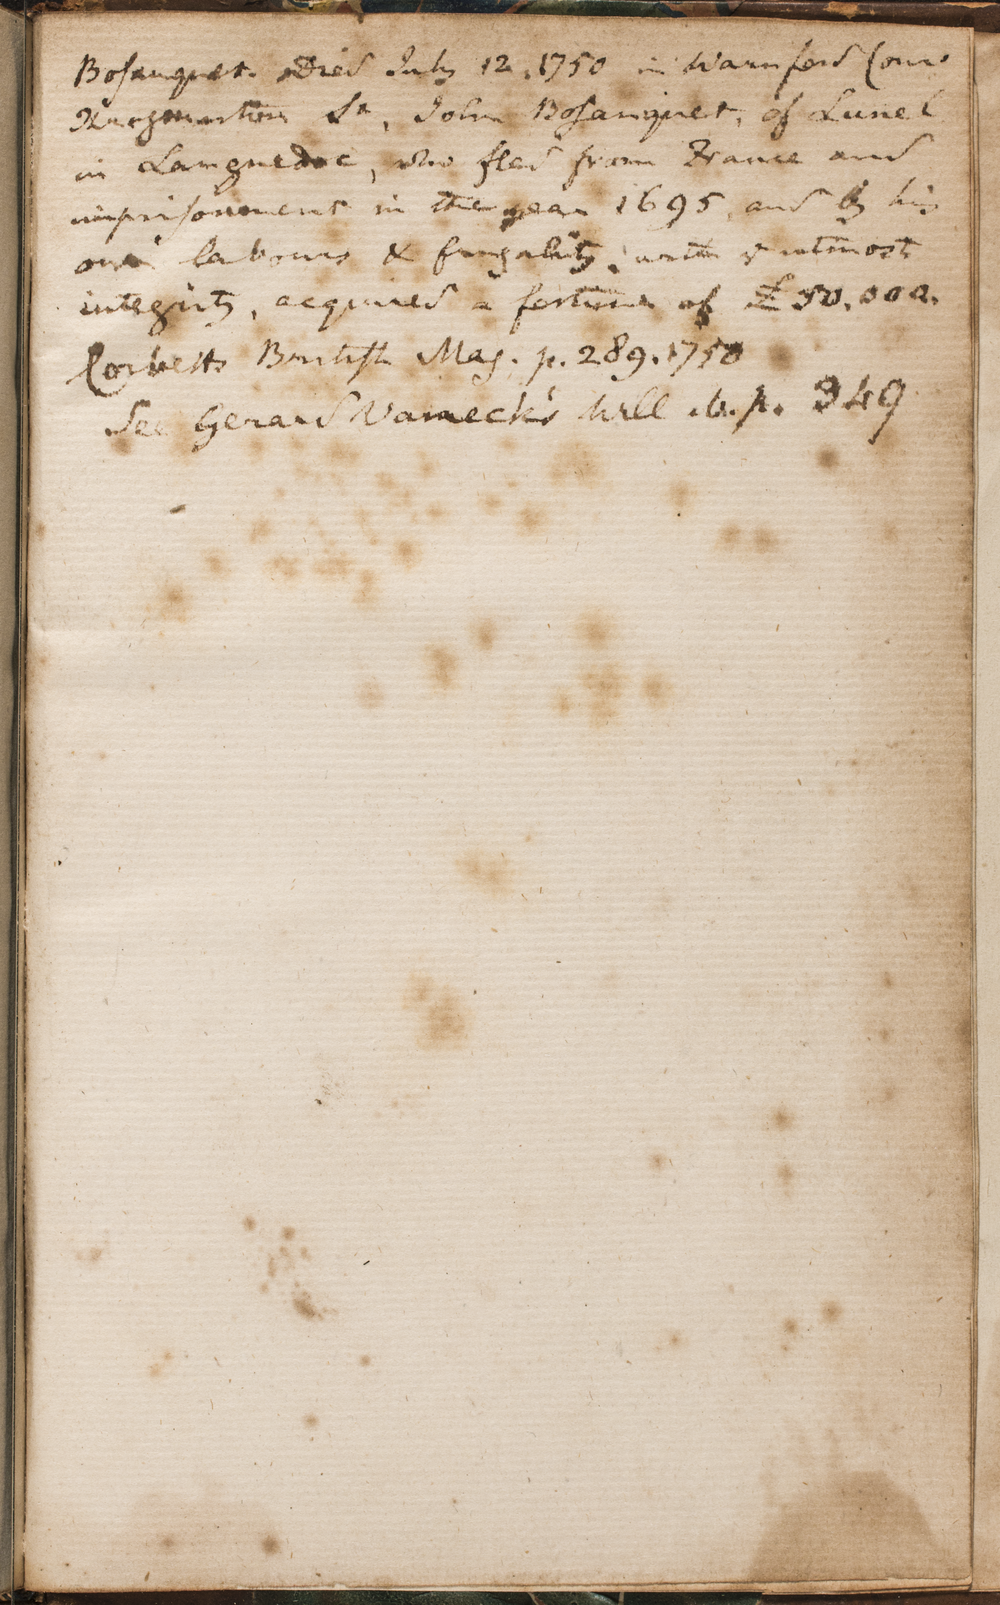 Bosanquet. Died July 12. 1750 in Warnford Cour
Throgmorton St, John Bosanquet, of Lunel
in Languedoc, who fled from France and
imprisonment in the year 1695, and by his
own labours & frugality, with ye utmost
integrity, acquired a fortune of £50.000.
Corbetts British Mag. p. 289. 1750
See Gerard Vanneck's Will ib. p. 349